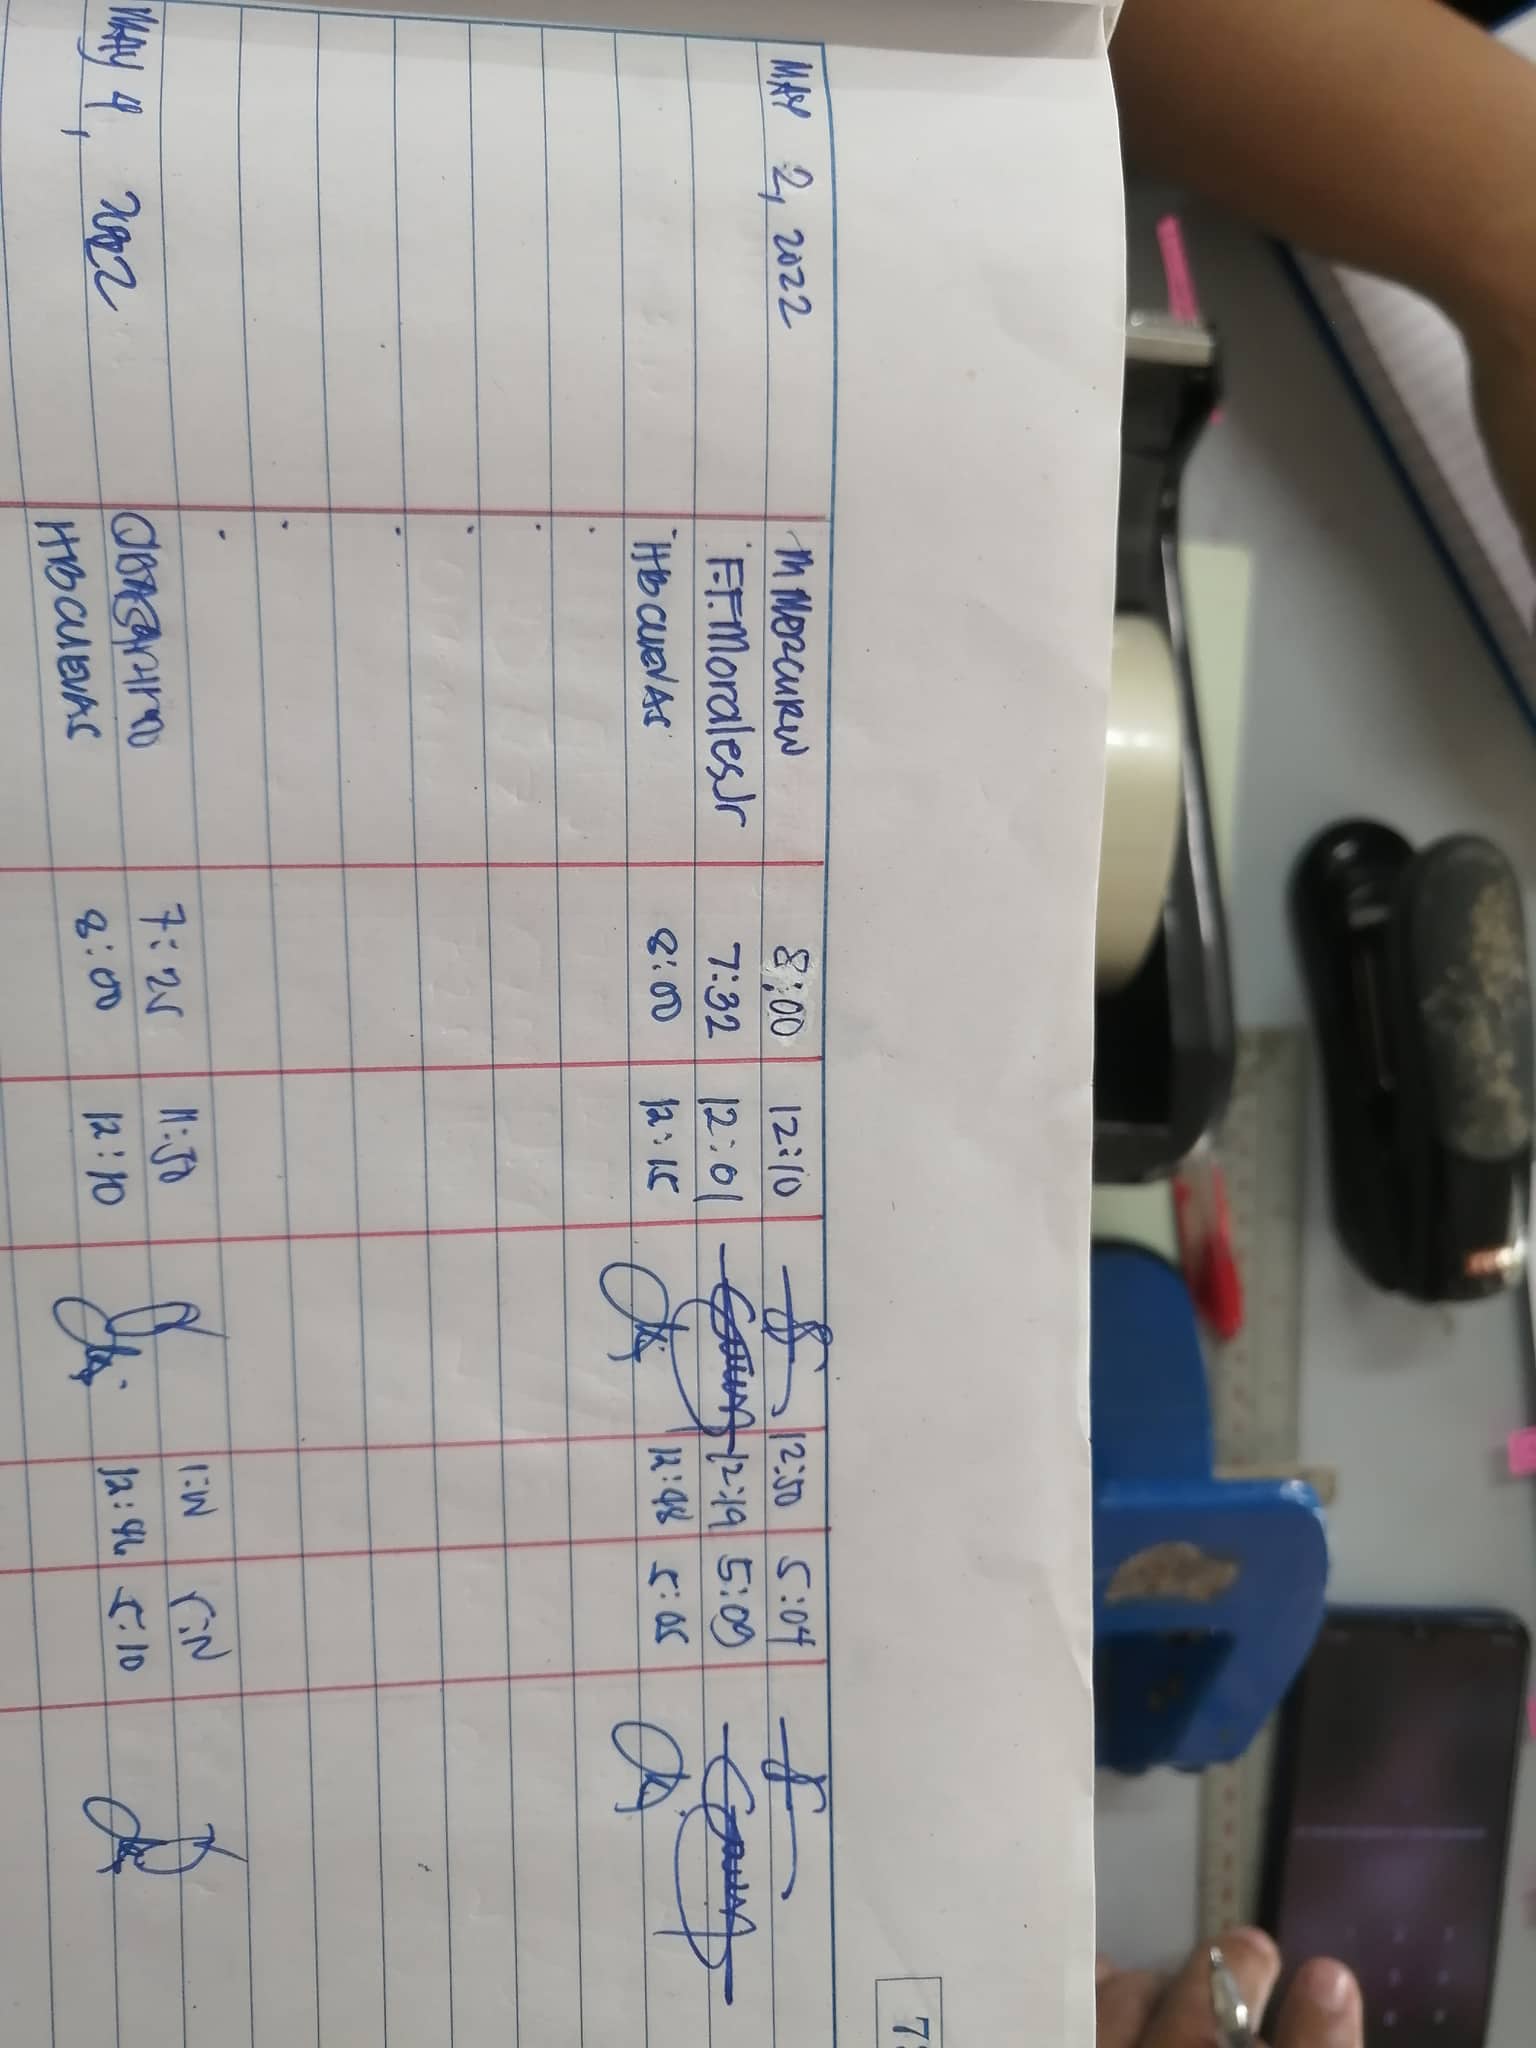 MAY 2, 2022 8:00 12:10 12:50 5:04
F.F. Morales Jr 7:32 12:01 12:19 5:09
HB CUEVAS 8:00 12:15 12:48 5:05
MAY 4, 2022 7:25 11:50
HB CUEVAS 8:00 12:10 5:10